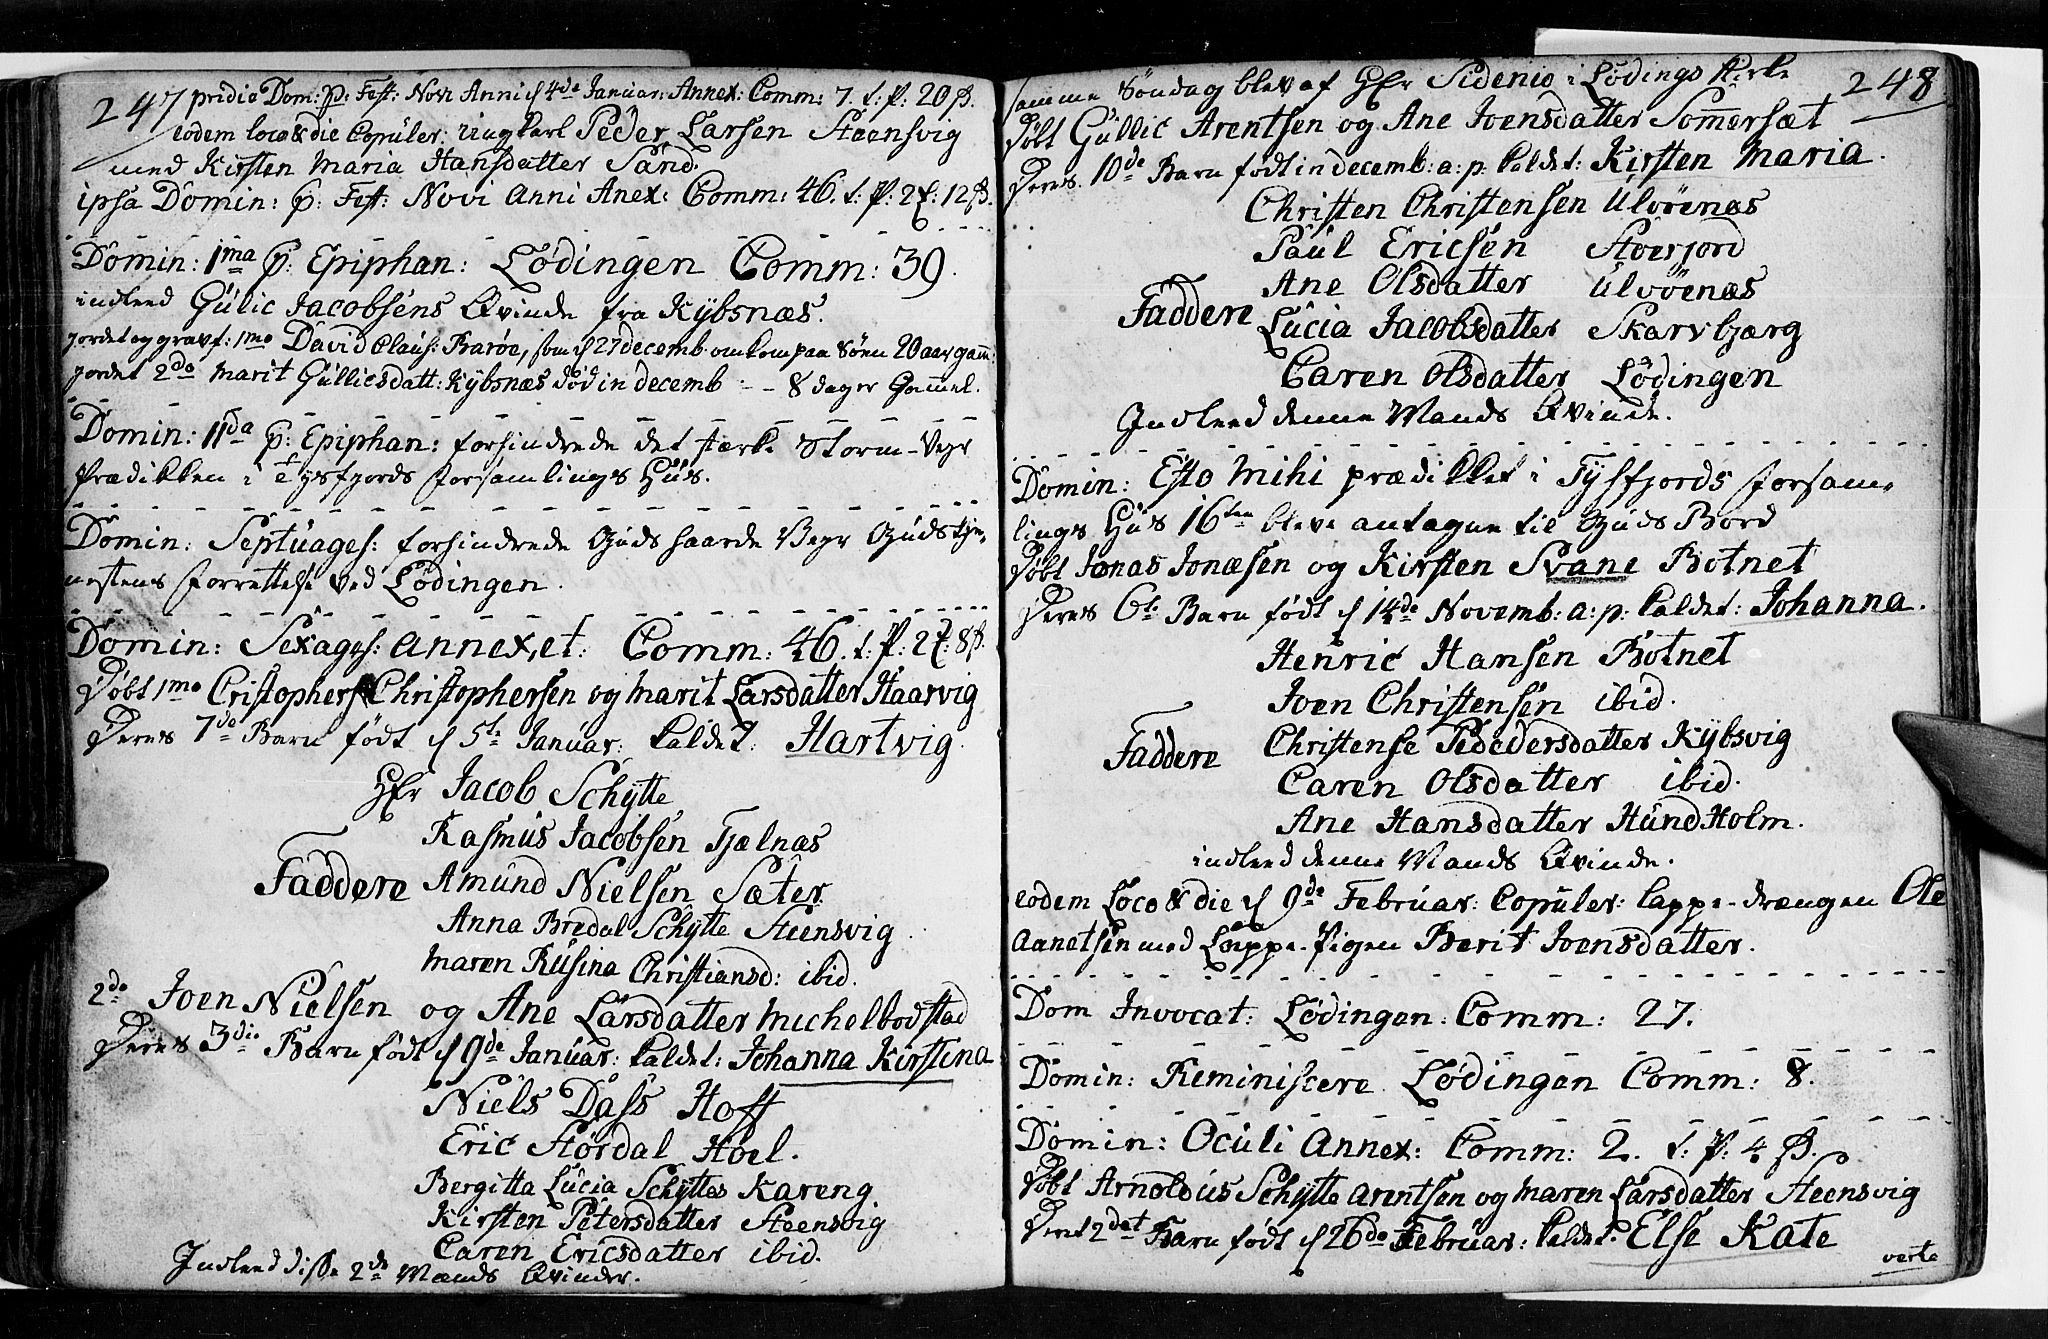 247 pridie Dom: p: Fest: Novi Anni d 4de Januar: Annex: Comm: 7. t: P: 20 ß.
eodem loco & die Copuler: ungkarl Peder Larsen Steensvig
med Kirsten Maria Hansdatter Sand.
ipsa Domin: p: Fest: Novi Anni Anex: Comm: 46. t: P: 2 : 12 ß.
Domin: 1ma p: Epiphan: Lødingen Comm: 39.
indleed Gulic Jacobsens Qvinde fra Kybsnæs.
jordet og gravf: 1mo David Claus: Barøe, som d 27 decemb: omkom paa Søen 20 aar gam:
jordet 2do Marit Gulliesdatt: Kybsnæs død in decemb: - - 8 dager Gammel.
Domin: 11da p: Epiphan: forhindrede det stærke Storm-Vejr
Prædikken i Tysfjords Forsamlings Huus.
Domin: Septuages: forhindrede Guds haarde Vejr Gudstje-
nestens Forrettelse ved Lødingen.
Domin: Sexages: Annexet: Comm: 46. t: P: 2 : 8 ß.
Døbt 1mo Cristophers Christophersen og Marit Larsdatter Haarvig
Deres 7de Barn født d 5te Januar: kaldet: Hartvig.
Hr Jacob Schytte
Rasmus Jacobsen Fjælnæs
Faddere Amund Nielsen Sæter.
Anna Bredal Schytte Steensvig
Maren Rusina Christiansd: ibid.
2do Joen Nielsen og Ane Larsdatter Michelbodstad
Deres 3die Barn født d 9de Januar: kaldet: Johanna Kirstina
Niels Dass Hoff
Eric Stordal Hoel.
Bergitta Lucia Schyttes Kareng
Kirsten Petersdatter Steensvig
Caren Ericsdatter ibid.
Indleed disse 2de Mænds Qvinder.
248
samme Søndag blev af Hr Sidenio i Lødings Kirke
døbt Gullic Arentsen og Ane Joensdatter Somersæt
Deres 10de Barn født in decemb: a: p: kaldet: Kirsten Maria.
Christen Christensen Ulvøenæs
Paul Ericsen Stoerjord
Ane Olsdatter Ulvöenæs
Faddere Lucia Jacobsdatter Skarvbjærg
Caren Olsdatter Lödingen
Indleed denne Mands Qvinde.
Domin: Esto Mihi prædikket i Tysfjords Forsam-
lings Huus 16ten bleve antagne til Guds Bord
Døbt Jonas Jonæsen og Kirsten Svane Botnet
Deres 6te Barn født d 14de Novemb: a: p: kaldet: Johanna.
Henric Hansen Botnet
Joen Christensen ibid.
Faddere Christense Pededersdatter Kybsvig
Caren Olsdatter ibid.
Ane Hansdatter HundHolm.
indleed denne Mands Qvinde.
eodem Loco & die d 9de Februar: Copuler: Lappe-drængen Ole
Aanetsen med Lappe-Pigen Berit Joensdatter.
Dom Invocat: Lødingen: Comm: 27.
Domin: Reminiscere Lødingen Comm: 8.
Domin: Oculi Annex: Comm: 2. t: P: 4 ß.
Døbt Arnoldus Schytte Arentsen og Maren Larsdatter Steensvig
Deres 2det Barn født d 26de Februar: kaldet: Else Kate
verte